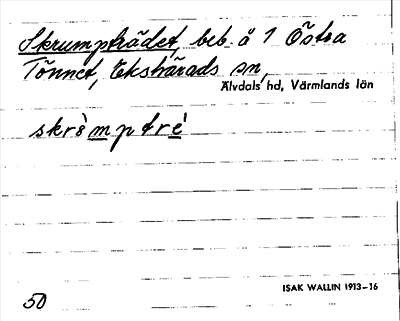 Skrumpträdet, beb. å 1 Östra
Tönnet, Ekshärads sn,
Älvdals hd, Värmlands län
skrömptré
ISAK WALLIN 1913-16
50